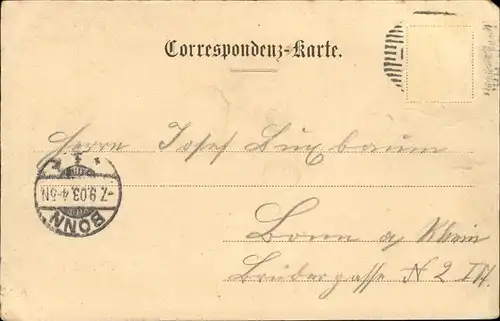 Correspondenz-Karte.
Herrn Josef Buxbaum
1 1 e
-7.9.03.4-5N
BONN
Bonn a/ Rhein
Brüdergasse N 2 III.